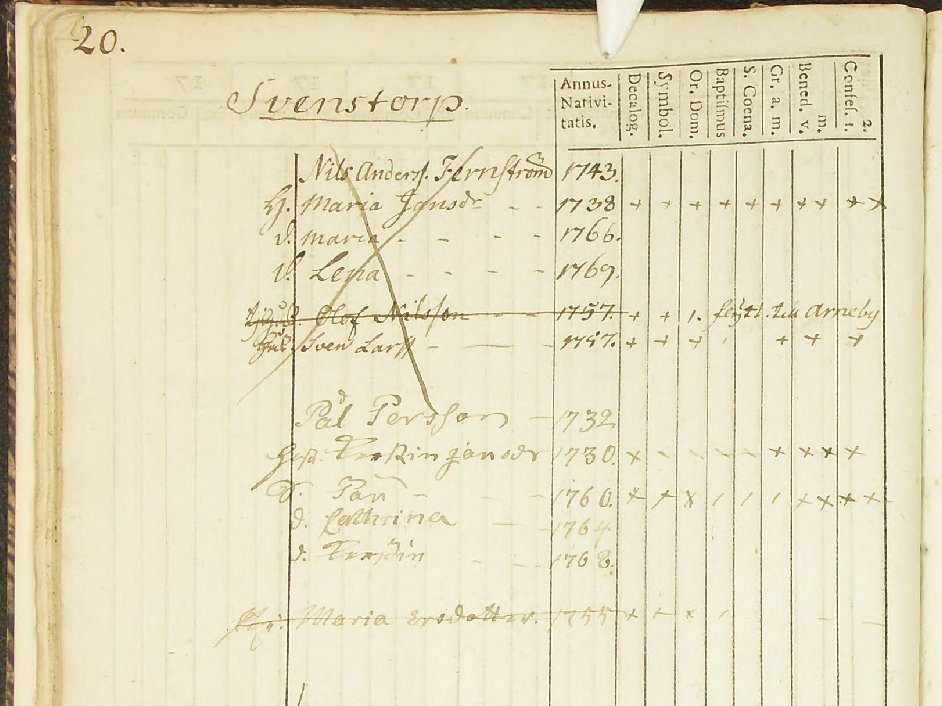 20.
Svenstorp.
Annus. Nativi- tatis. Decalog. Symbol. Or. Dom. Baptismus S. Coena. Gr. a. m. Bened. v. m. Confes. 1. 2.
Nils Anders. Fernström 1743.
H. Maria Jonsdr - - 1738 + + + + + + + + + + +
d. maria - - - - 1766.
d. Lena - - - - - 1769.
Olof Nilsson - - 1757. + + 1. flytt. till Arneby
Sven Larss - - 1757. + + + + + +
Pål Persson - 1732
Kerstin Jonsdr 1730. + - - - - + + + + +
- - - 1760. + + x / / / + + + +
d. Cathrina - - 1764
d. Kerstin - - 1768.
Maria 1755 + + x /